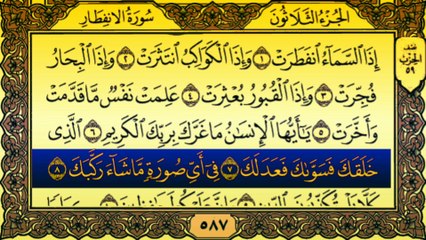 الجزء الثلاثون
سورة الانفطار
نصف الحزب ٥٩
إِذَا السَّمَآءُ انفَطَرَتْ ١ وَإِذَا الْكَوَاكِبُ انتَثَرَتْ ٢ وَإِذَا الْبِحَارُ
فُجِّرَتْ ٣ وَإِذَا الْقُبُورُ بُعْثِرَتْ ٤ عَلِمَتْ نَفْسٌ مَّا قَدَّمَتْ
وَأَخَّرَتْ ٥ يَٰٓأَيُّهَا الْإِنسَٰنُ مَا غَرَّكَ بِرَبِّكَ الْكَرِيمِ ٦ الَّذِى
خَلَقَكَ فَسَوَّىٰكَ فَعَدَلَكَ ٧ فِىٓ أَىِّ صُورَةٍ مَّا شَآءَ رَكَّبَكَ ٨
٥٨٧